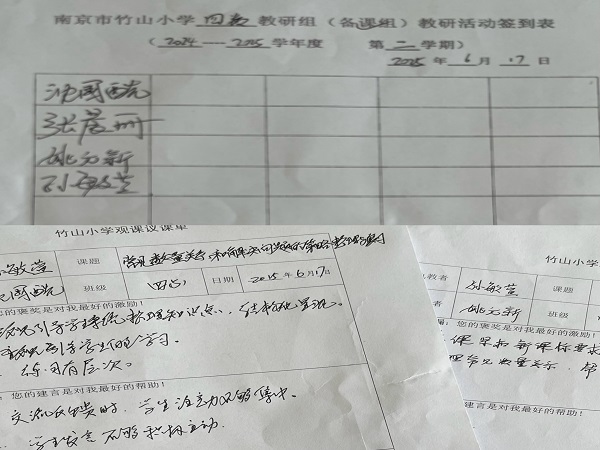 南京市竹山小学 四数 教研组（备课组）教研活动签到表
（ 2024 — 2025 学年度 第 二 学期）
2025 年 6 月 17 日
张晨册
姚元新
孙敏莹
竹山小学观课议课单
敏莹 课题 常见数量关系和解决问题的策略整理与复习
班级 四（1） 日期 2025 年 6 月 17 日
您的褒奖是对我最好的激励！
引导学生系统梳理知识点，结构化呈现。
学生的学习。
练习有层次。
您的建言是对我最好的帮助！
交流反馈时，学生注意力不够集中。
学生发言不够积极主动
教者 孙敏莹 课题
姚元新 班级
您的褒奖是对我最好的激励！
课采扣新课标要求
常见数量关系，帮
建言是对我最好的帮助！